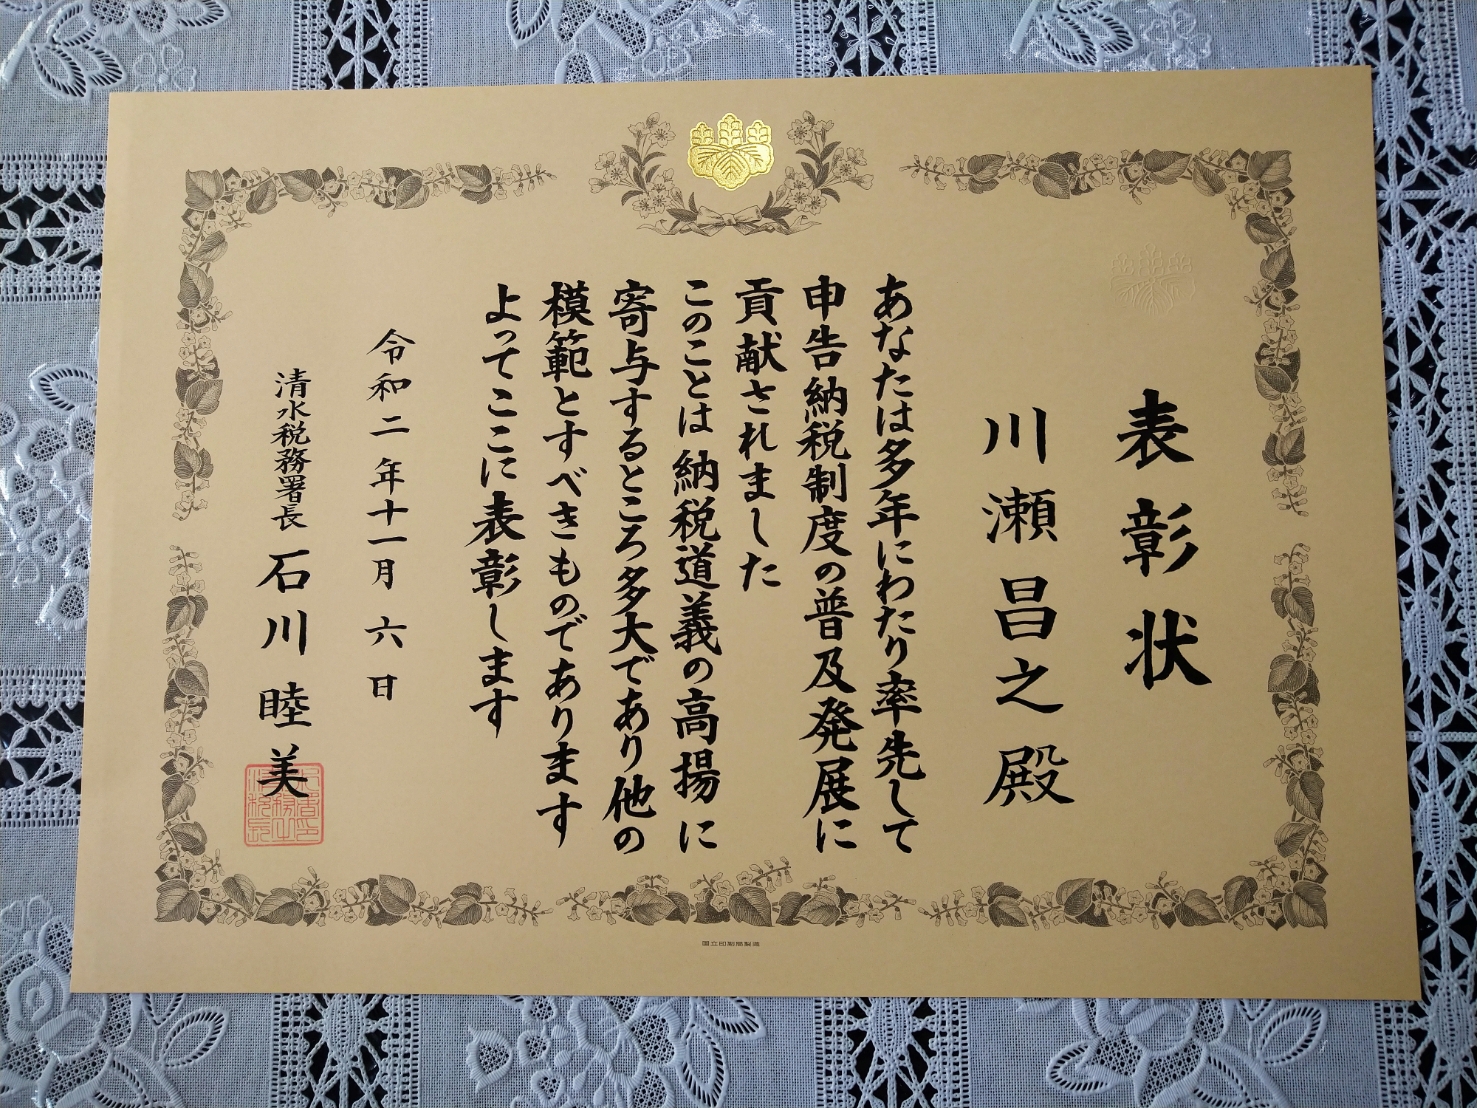 表彰状
川瀬昌之殿
あなたは多年にわたり率先して
申告納税制度の普及発展に
貢献されました
このことは納税道義の高揚に
寄与するところ多大であり他の
模範とすべきものであります
よってここに表彰します
令和二年十一月六日
清水税務署長 石川睦美
国立印刷局製造